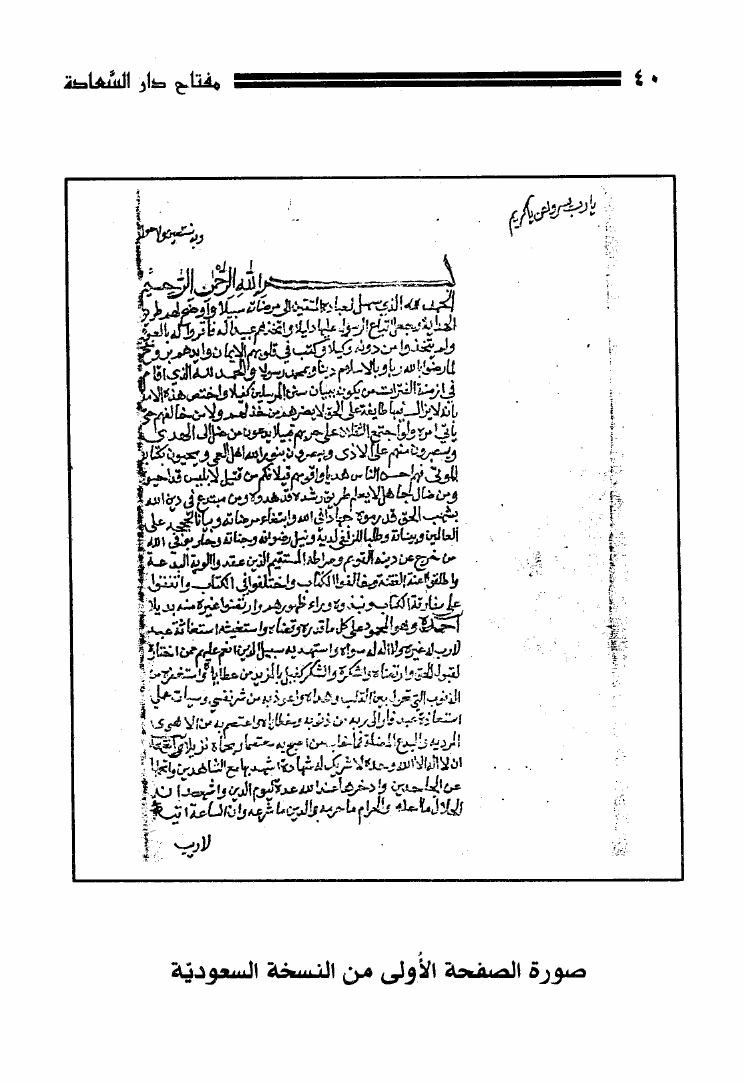 ٤٠ مفتاح دار السَّعادة
يا رب يسر وأعن يا كريم
وبه نستعين
بسم الله الرحمن الرحيم
الحمد لله الذي سهل لعباده المتقين إلى مرضاته سبيلا وأوضح لهم طرق
الهداية وجعل اتباع الرسول عليها دليلا واتخذهم عبيدا له فأقروا له بالعبو
ولم يتخذوا من دونه وكيلا وكتب في قلوبهم الإيمان وأيدهم بروح
لما رضوا بالله ربا وبالاسلام دينا وبمحمد رسولا والحمد لله الذي اقام
في ازمنة الفترات من يكون ببيان سنن المرسلين كفيلا واختص هذه الامة
بانه لا يزال فيها طايفة على الحق لا يضرهم من خذلهم ولا من خالفهم حتى
ياتي امره ولو اجتمع الثقلان على حربهم قبيلا يدعون من ضل الى الهدى
ويصبرون منهم على الاذى ويبصرون بنور الله اهل العمى ويحيون بكتابه
الموتى فهم احسن الناس هديا واقومهم قيلا فكم من قتيل لابليس قد احيوه
ومن ضال جاهل لا يعلم طريق رشده قد هدوه ومن مبتدع في دين الله
بشهب الحق قد رموه جهادا في الله وابتغاء مرضاته وبيانا لحججه على
العالمين وبيناته وطلبا للزلفى لديه ونيل رضوانه وجناته وحاربوا في الله
من خرج عن دينه القويم وصراطه المستقيم الذين عقدوا الوية البدعة
واطلقوا اعنة الفتنة وخالفوا الكتاب واختلفوا في الكتاب واتفقوا
على مفارقة الكتاب ونبذوه وراء ظهورهم وارتضوا غيره منه بديلا
احمده وهو المحمود على كل ما قدره وقضاه واستعينه استعانة عبد
لا رب له غيره ولا اله له سواه واستهديه سبيل الذين انعم عليهم ممن اختاره
لقبول الحق وارتضاه واشكره والشكر كفيل بالمزيد من عطاياه واستغفره من
الذنوب التي تحول بين القلب وهداه واعوذ به من شر نفسي وسيات عملي
استعاذة عبد فار الى ربه من ذنوبه وخطاياه واعتصم به من الاهوى
المرديه والبدع المضلة فما خاب من اصبح به معتصما وبحماه نزيلا واشهد
ان لا اله الا الله وحده لا شريك له شهادة اشهد بها مع الشاهدين
عن الجاحدين وادخرها عند الله عدة ليوم الدين واشهد ان
الحلال ما حلله والحرام ما حرمه والدين ما شرعه وان الساعة اتية
لا ريب
صورة الصفحة الأُولى من النسخة السعوديّة